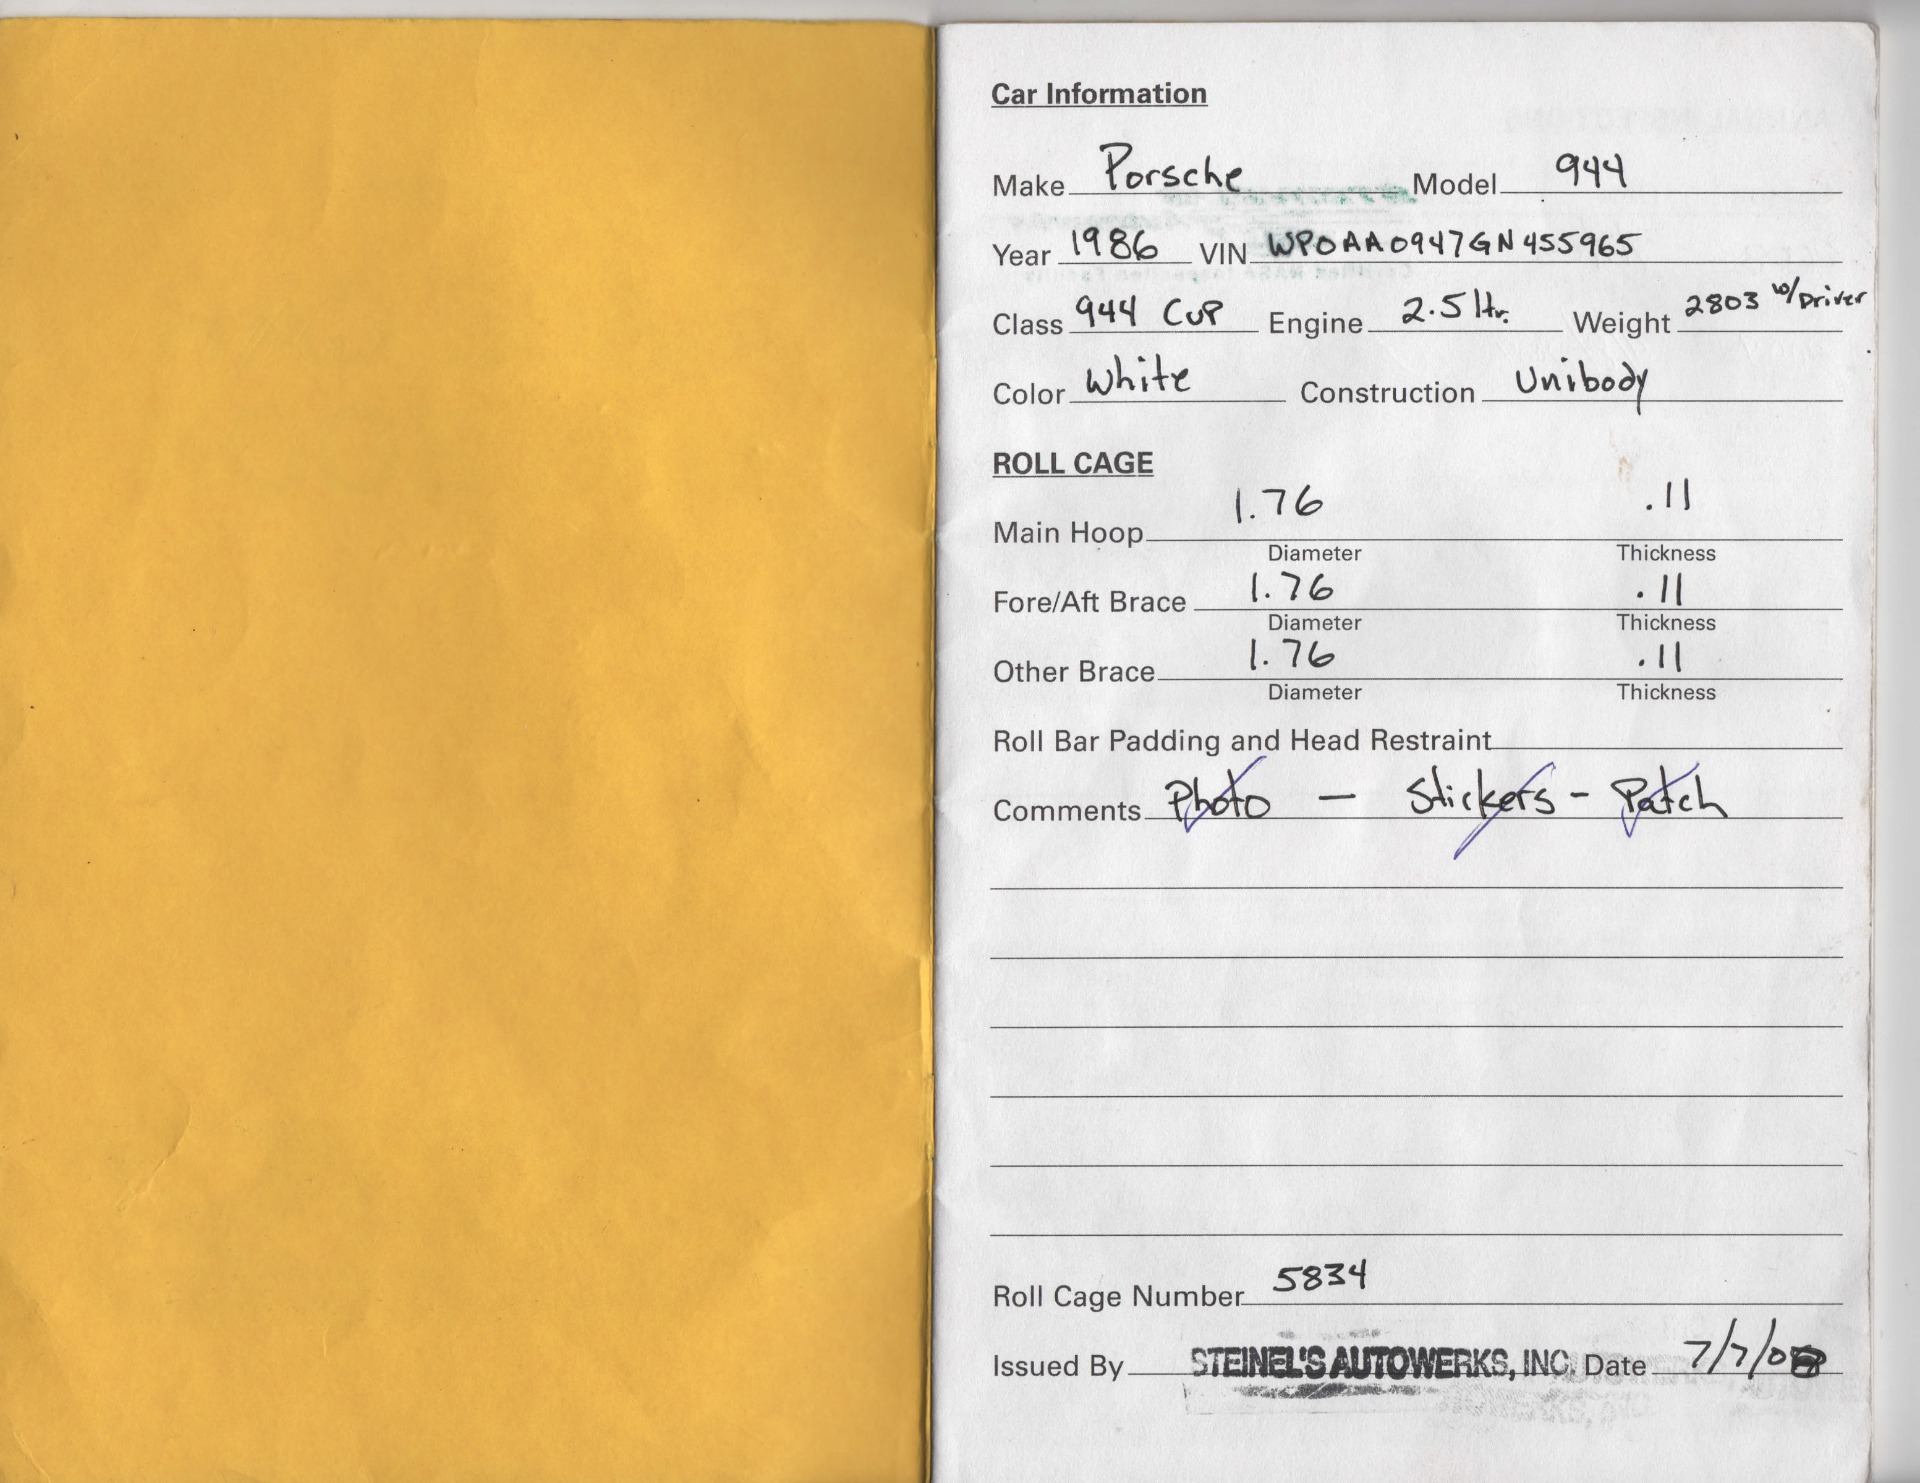 Car Information
Make Porsche Model 944
Year 1986 VIN WP0AA0947GN455965
Class 944 CUP Engine 2.5 ltr. Weight 2803 w/Driver
Color White Construction Unibody
ROLL CAGE
Main Hoop 1.76 .11
Diameter Thickness
Fore/Aft Brace 1.76 .11
Diameter Thickness
Other Brace 1.76 .11
Diameter Thickness
Roll Bar Padding and Head Restraint
Comments Photo - Stickers - Patch
Roll Cage Number 5834
Issued By STEINEL'S AUTOWERKS, INC. Date 7/7/08